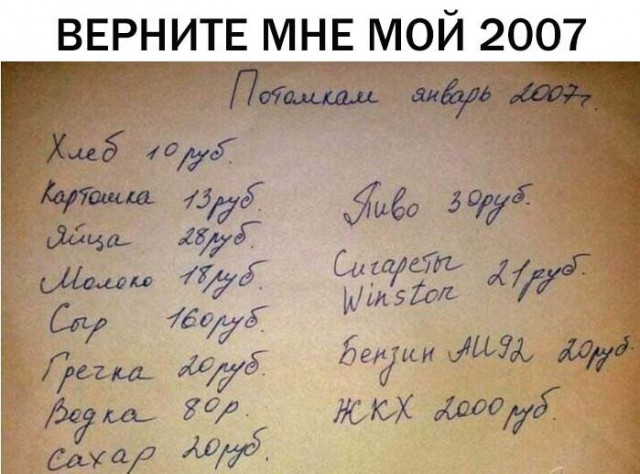 ВЕРНИТЕ МНЕ МОЙ 2007
Потомкам январь 2007г.
Хлеб 10 руб.
Картошка 13 руб.
Яйца 28 руб.
Молоко 18 руб.
Сыр 160 руб.
Гречка 20 руб.
Водка 80 р.
Сахар 20 руб.
Пиво 30 руб.
Сигареты
Winston 21 руб.
Бензин АИ92 20 руб
ЖКХ 2000 руб.